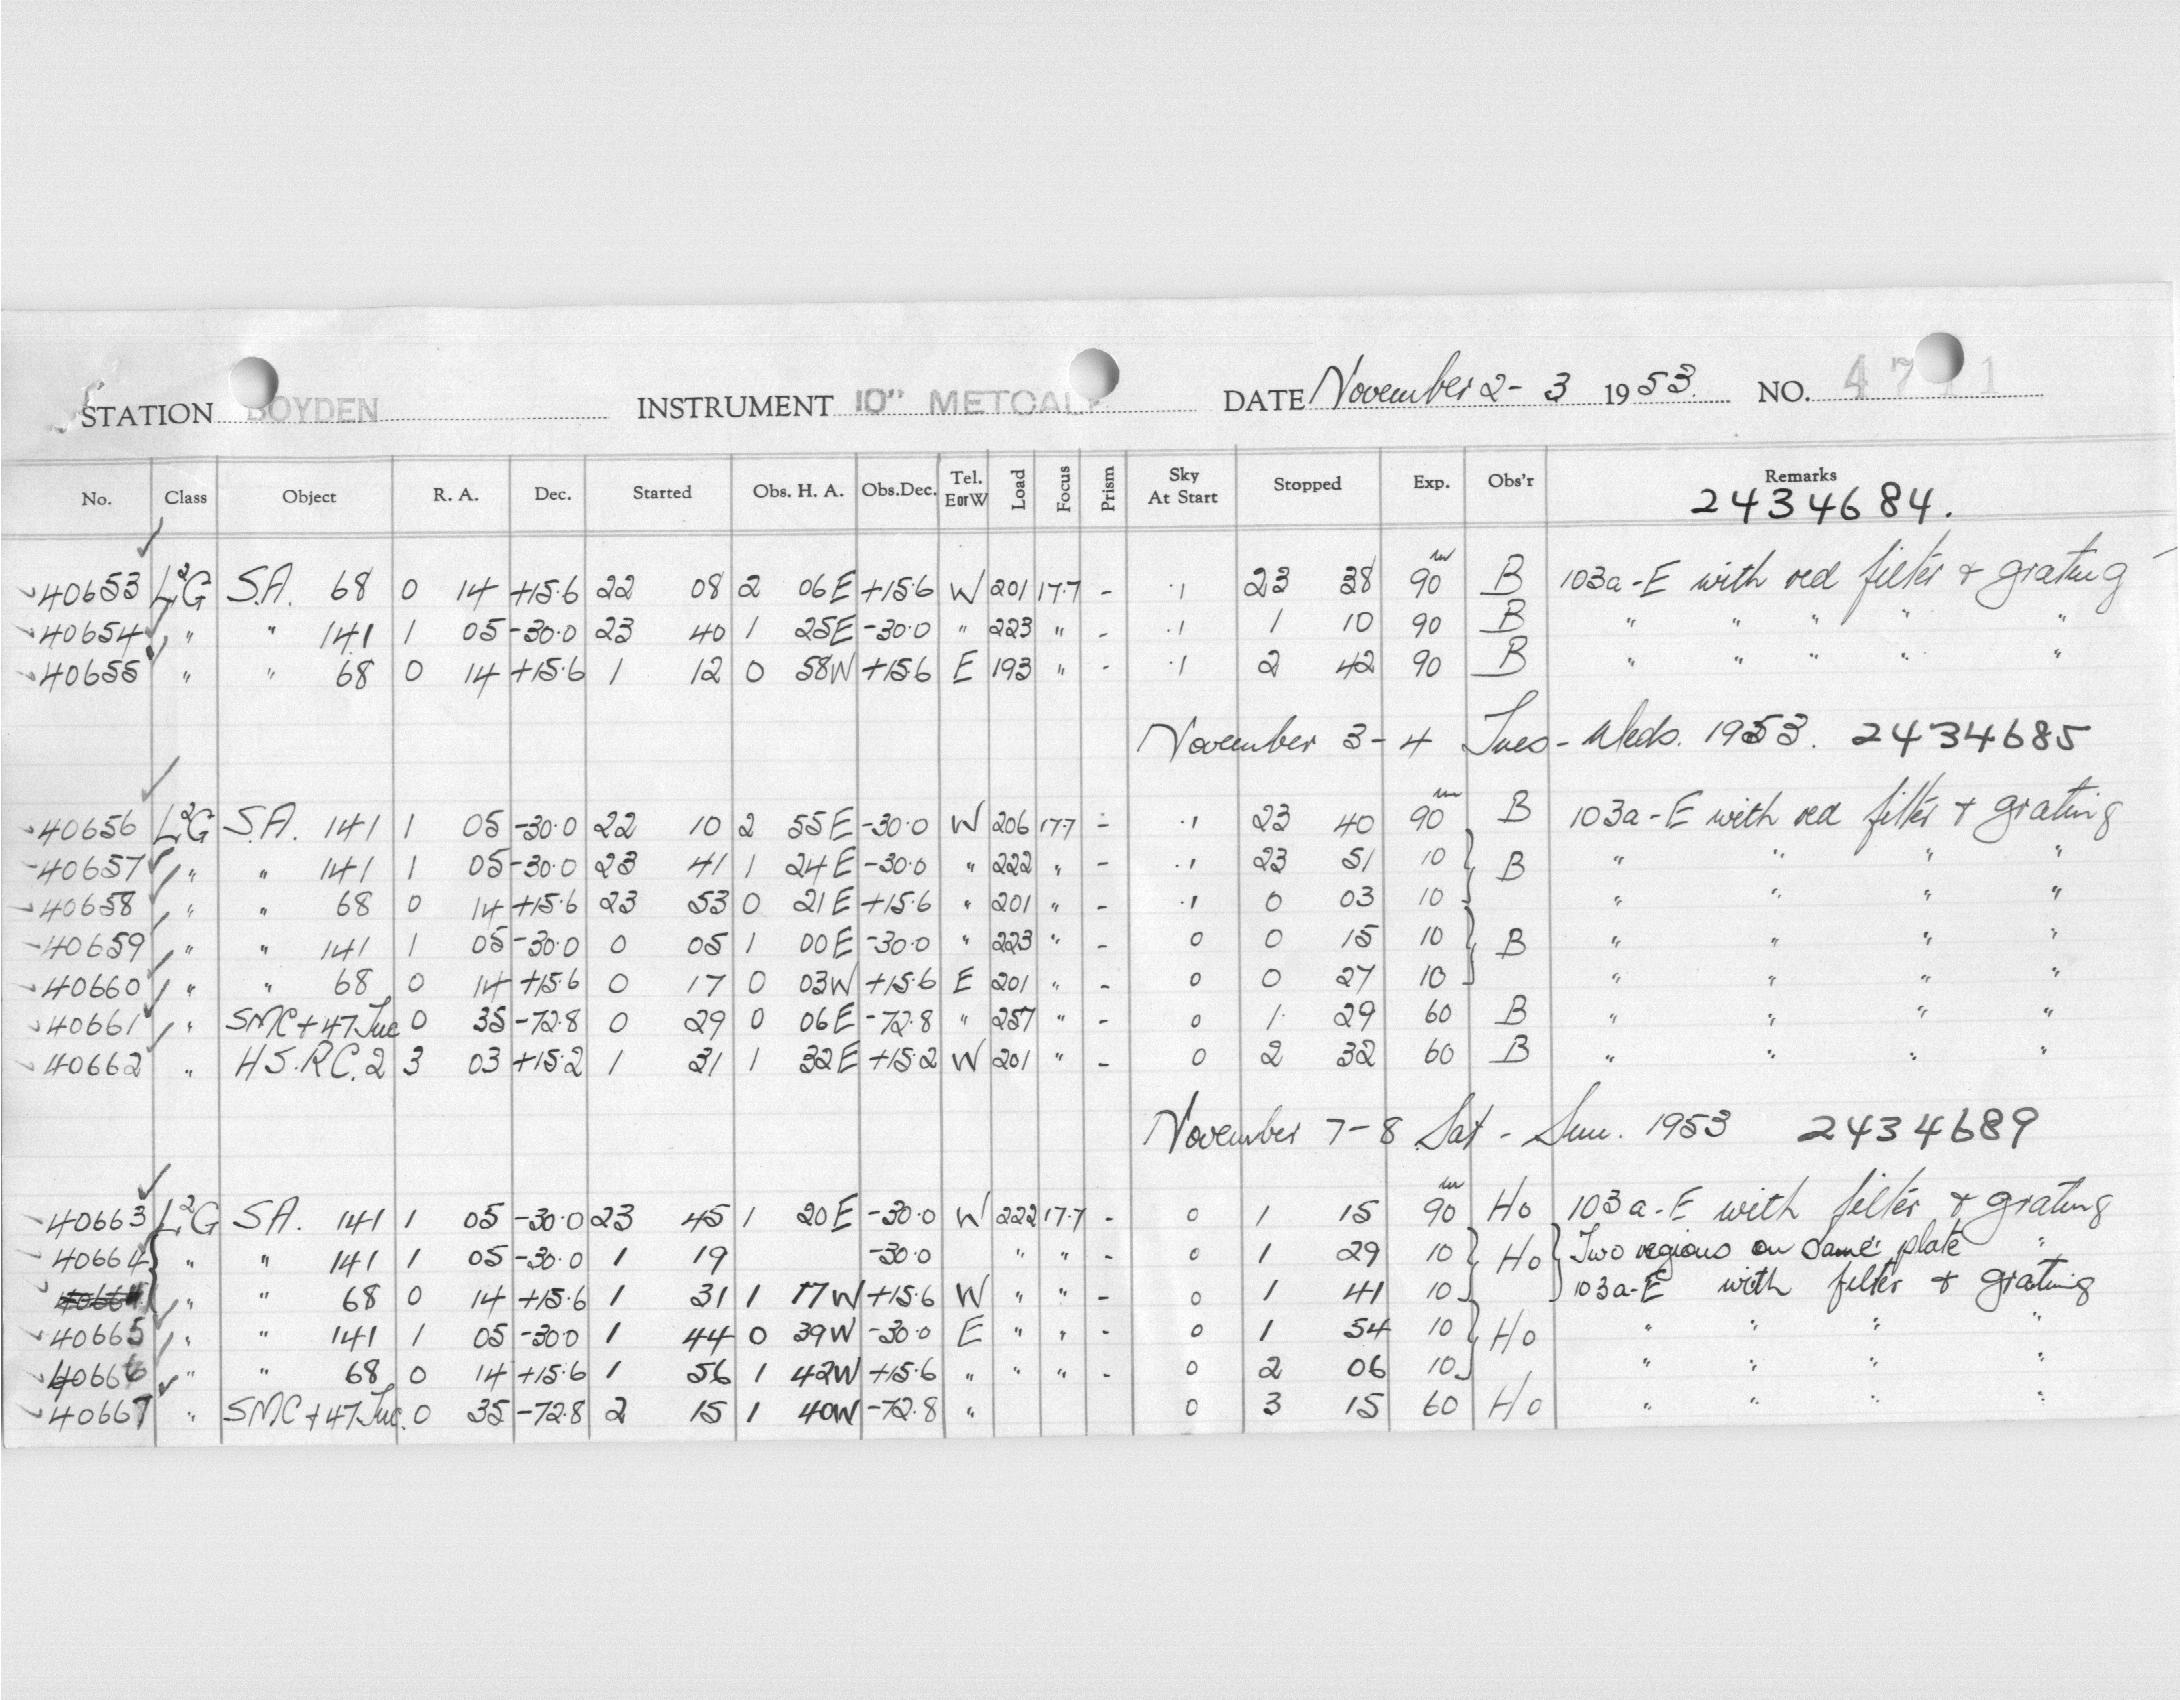 STATION BOYDEN INSTRUMENT 10" METCALF DATE November 2-3 1953. NO. 47 1
No. Class Object R. A. Dec. Started Obs. H. A. Obs.Dec. Tel. E or W Load Focus Prism Sky At Start Stopped Exp. Obs'r Remarks
2434684.
40653 L²G S.A. 68 0 14 +15.6 22 08 2 06E +15.6 W 201 17.7 - .1 23 38 90m B 103a-E with red filter + grating
40654 " " 141 1 05 -30.0 23 40 1 25E -30.0 " 223 " - .1 1 10 90 B " " " " "
40655 " " 68 0 14 +15.6 1 12 0 58W +15.6 E 193 " - .1 2 42 90 B " " " " "
November 3-4 Tues-Weds. 1953. 2434685
40656 L²G S.A. 141 1 05 -30.0 22 10 2 55E -30.0 W 206 17.7 - .1 23 40 90m B 103a-E with red filter + grating
40657 " " 141 1 05 -30.0 23 41 1 24E -30.0 " 222 " - .1 23 51 10 B " " " "
40658 " " 68 0 14 +15.6 23 53 0 21E +15.6 " 201 " - .1 0 03 10 " " " "
40659 " " 141 1 05 -30.0 0 05 1 00E -30.0 " 223 " - 0 0 15 10 B " " " "
40660 " " 68 0 14 +15.6 0 17 0 03W +15.6 E 201 " - 0 0 27 10 " " " "
40661 " SMC+47Tuc 0 35 -72.8 0 29 0 06E -72.8 " 257 " - 0 1 29 60 B " " " "
40662 " HS.RC.2 3 03 +15.2 1 31 1 32E +15.2 W 201 " - 0 2 32 60 B " " " "
November 7-8 Sat - Sun. 1953 2434689
40663 L²G S.A. 141 1 05 -30.0 23 45 1 20E -30.0 W 222 17.7 - 0 1 15 90m Ho 103a-E with filter + grating
40664 " " 141 1 05 -30.0 1 19 -30.0 " " - 0 1 29 10 Ho Two regions on same plate "
40664 " " 68 0 14 +15.6 1 31 1 17W +15.6 W " " - 0 1 41 10 103a-E with filter + grating
40665 " " 141 1 05 -30.0 1 44 0 39W -30.0 E " " - 0 1 54 10 Ho " " " "
40666 " " 68 0 14 +15.6 1 56 1 42W +15.6 " " " - 0 2 06 10 " " " "
40667 " SMC+47Tuc. 0 35 -72.8 2 15 1 40W -72.8 " 0 3 15 60 Ho " " " "